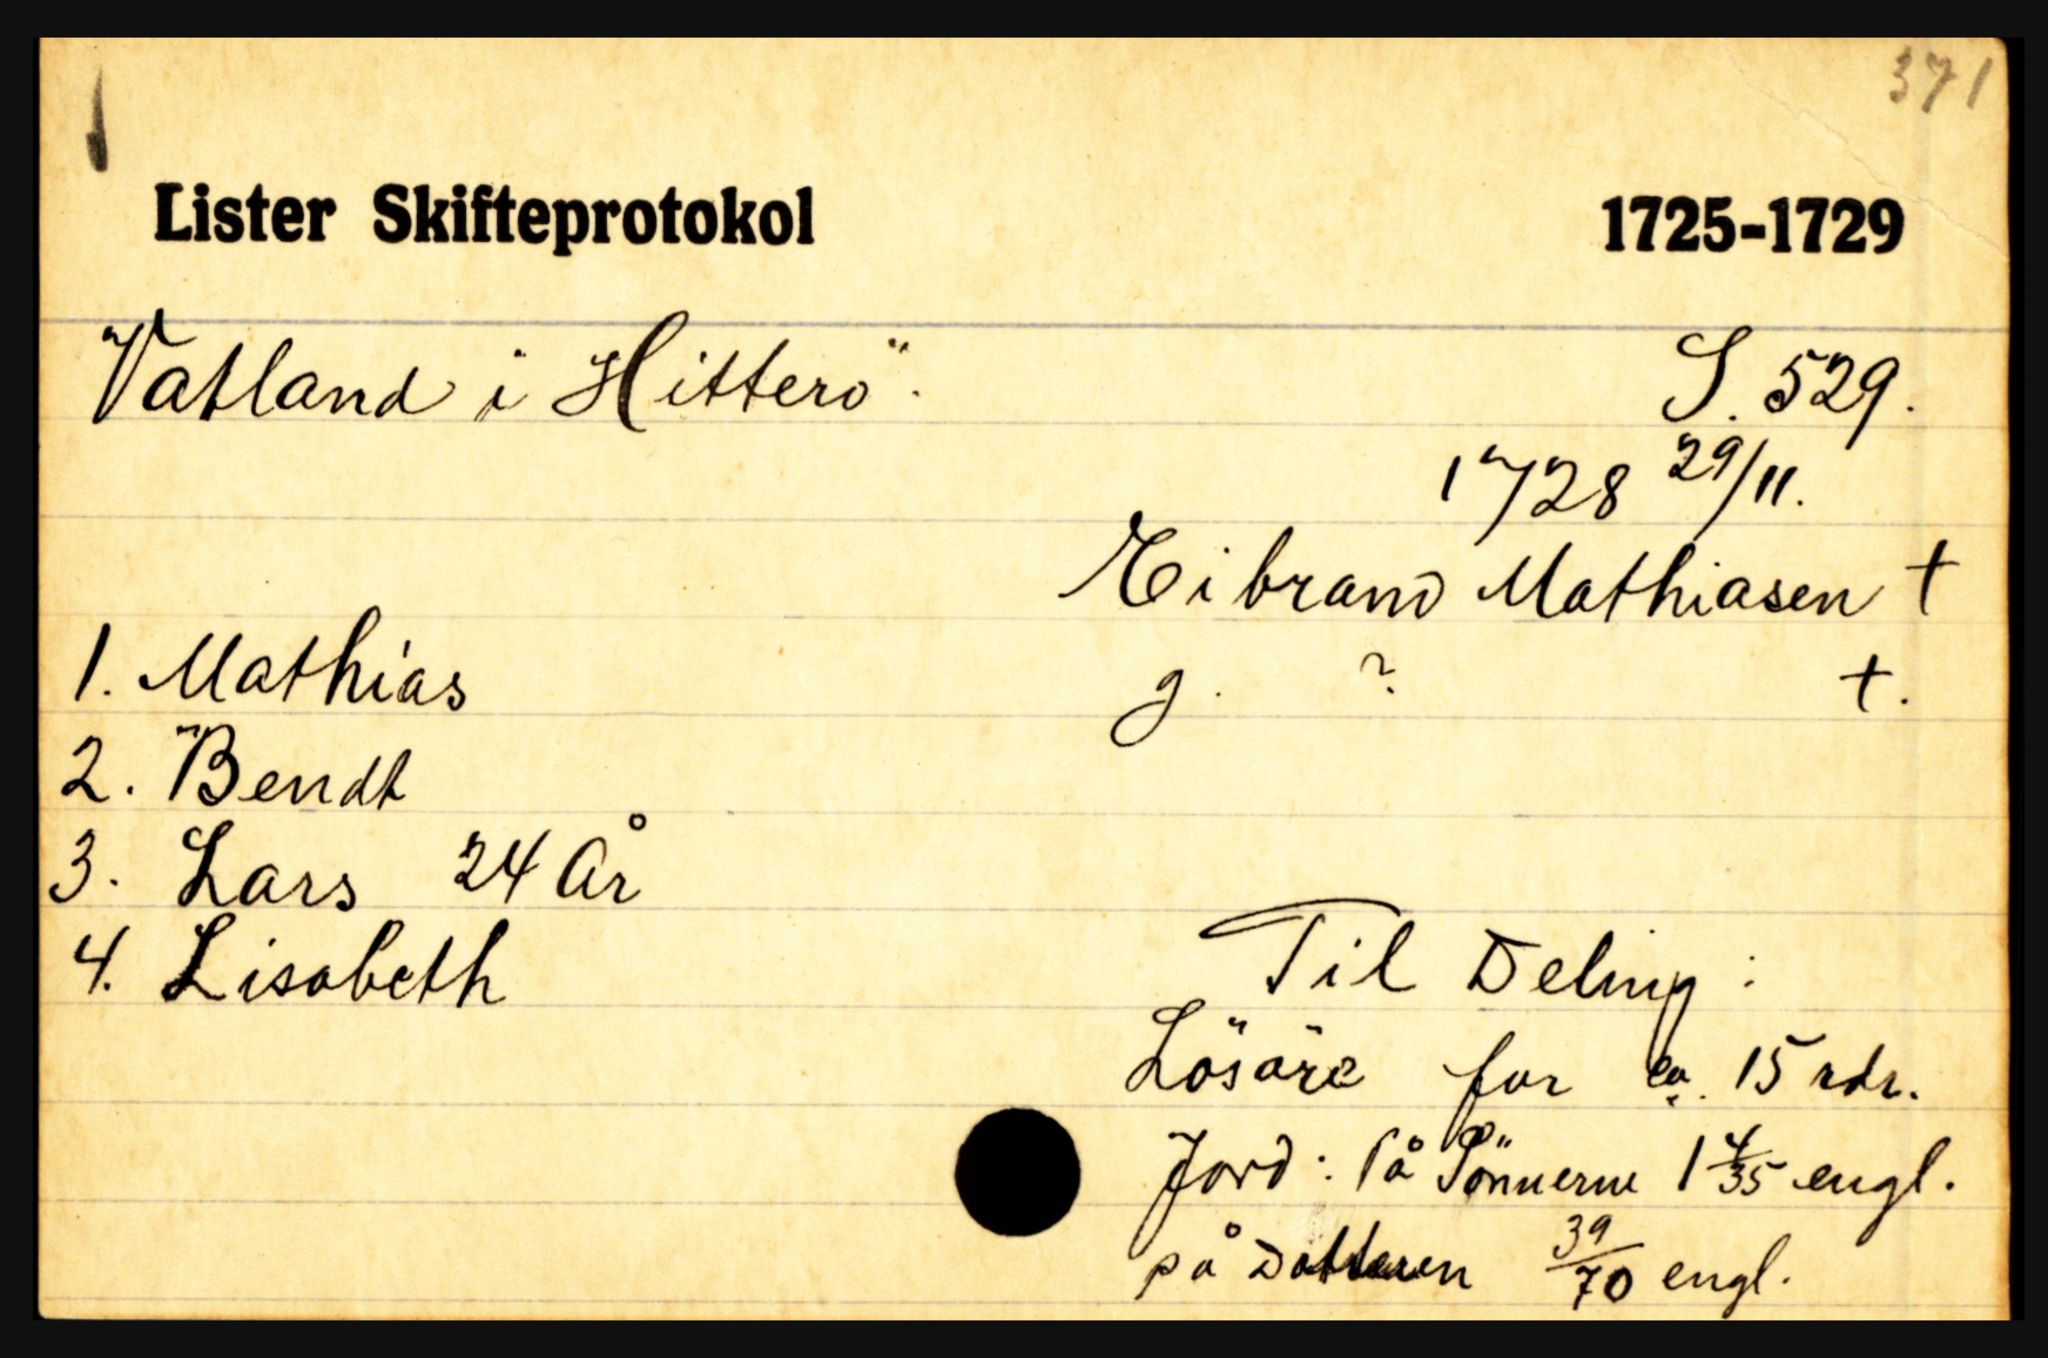 371
Lister Skifteprotokol 1725-1729
Vatland i Hitterö. S. 529.
1728 29/11.
Eibrand Mathiasen +
1. Mathias g. ? +.
2. Bendt
3. Lars 24 År
4. Lisabeth Til Deling:
Lösöre for ca. 15 rdr.
Jord: På Sönnerne 1 4/35 engl.
på Datteren 39/70 engl.